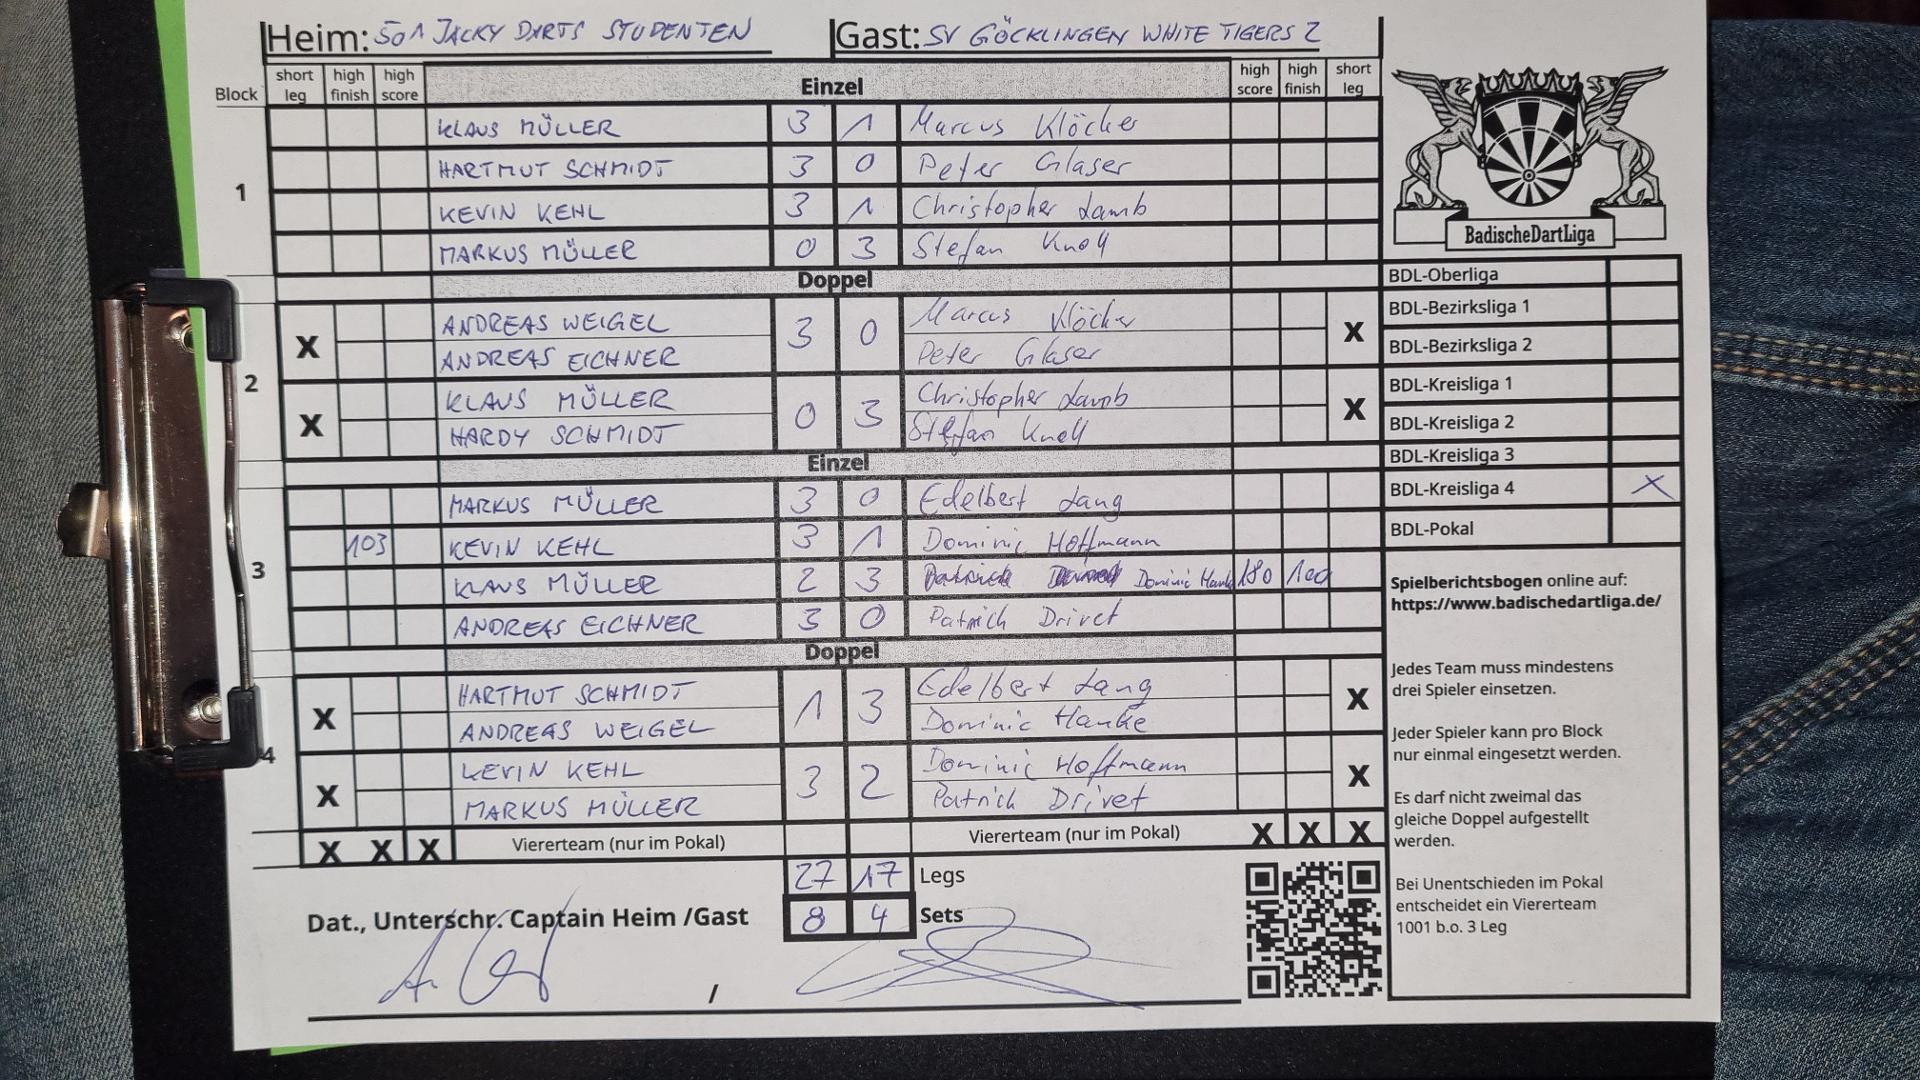 Heim: 501 JACKY DARTS STUDENTEN Gast: SV GÖCKLINGEN WHITE TIGERS 2
Block short leg high finish high score Einzel high score high finish short leg
1
KLAUS MÜLLER 3 1 Marcus Klöcker
HARTMUT SCHMIDT 3 0 Peter Glaser
KEVIN KEHL 3 1 Christopher Lamb
MARKUS MÜLLER 0 3 Stefan Knoll
Doppel
2
X ANDREAS WEIGEL 3 0 Marcus Klöcker X
ANDREAS EICHNER Peter Glaser
X KLAUS MÜLLER 0 3 Christopher Lamb X
HARDY SCHMIDT Stefan Knoll
Einzel
3
MARKUS MÜLLER 3 0 Edelbert Lang
103 KEVIN KEHL 3 1 Dominic Hoffmann
KLAUS MÜLLER 2 3 Patrick Dominic Hanke 180
ANDREAS EICHNER 3 0 Patrick Drivet
Doppel
4
X HARTMUT SCHMIDT 1 3 Edelbert Lang X
ANDREAS WEIGEL Dominic Hanke
X KEVIN KEHL 3 2 Dominic Hoffmann X
MARKUS MÜLLER Patrick Drivet
X X X Viererteam (nur im Pokal) Viererteam (nur im Pokal) X X X
27 17 Legs
Dat., Unterschr. Captain Heim /Gast 8 4 Sets
/
BadischeDartLiga
BDL-Oberliga
BDL-Bezirksliga 1
BDL-Bezirksliga 2
BDL-Kreisliga 1
BDL-Kreisliga 2
BDL-Kreisliga 3
BDL-Kreisliga 4 X
BDL-Pokal
Spielberichtsbogen online auf:
https://www.badischedartliga.de/
Jedes Team muss mindestens
drei Spieler einsetzen.
Jeder Spieler kann pro Block
nur einmal eingesetzt werden.
Es darf nicht zweimal das
gleiche Doppel aufgestellt
werden.
Bei Unentschieden im Pokal
entscheidet ein Viererteam
1001 b.o. 3 Leg